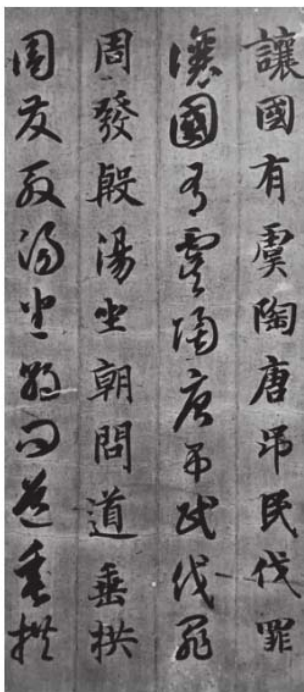 讓國有虞陶唐弔民伐罪
讓國有虞陶唐弔民伐罪
周發殷湯坐朝問道垂拱
周發殷湯坐朝問道垂拱